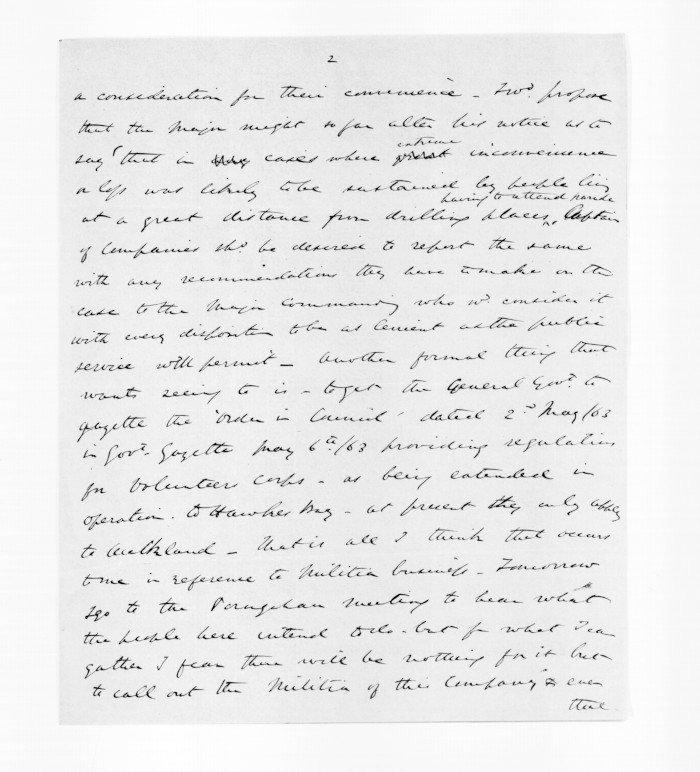 2
a consideration for their convenience - I wd. propose
that the Major might so far alter his notice as to
say that in cases where extreme inconvenience
or loss was likely to be sustained by people living
at a great distance from drilling places having to attend parade, Captain
of Companies shd. be desired to report the same
with any recommendations they have to make on the
case to the Major Commanding who wd. consider it
with every disposition to be as lenient as the public
service will permit - Another formal thing that
wants seeing to is - to get the General Govt. to
gazette the 'Order in Council' dated 2nd May/63
in Govt. Gazette May 6th/63 providing regulations
for Volunteer Corps - as being extended in
operation to Hawkes Bay - at present they only apply
to Auckland - That is all I think that occurs
to me in reference to Militia business - Tomorrow
I go to the Porangahau meeting to hear what
the people here intend to do - but fr what I can
gather I fear there will be nothing for it but
to call out the Militia of this Company & even